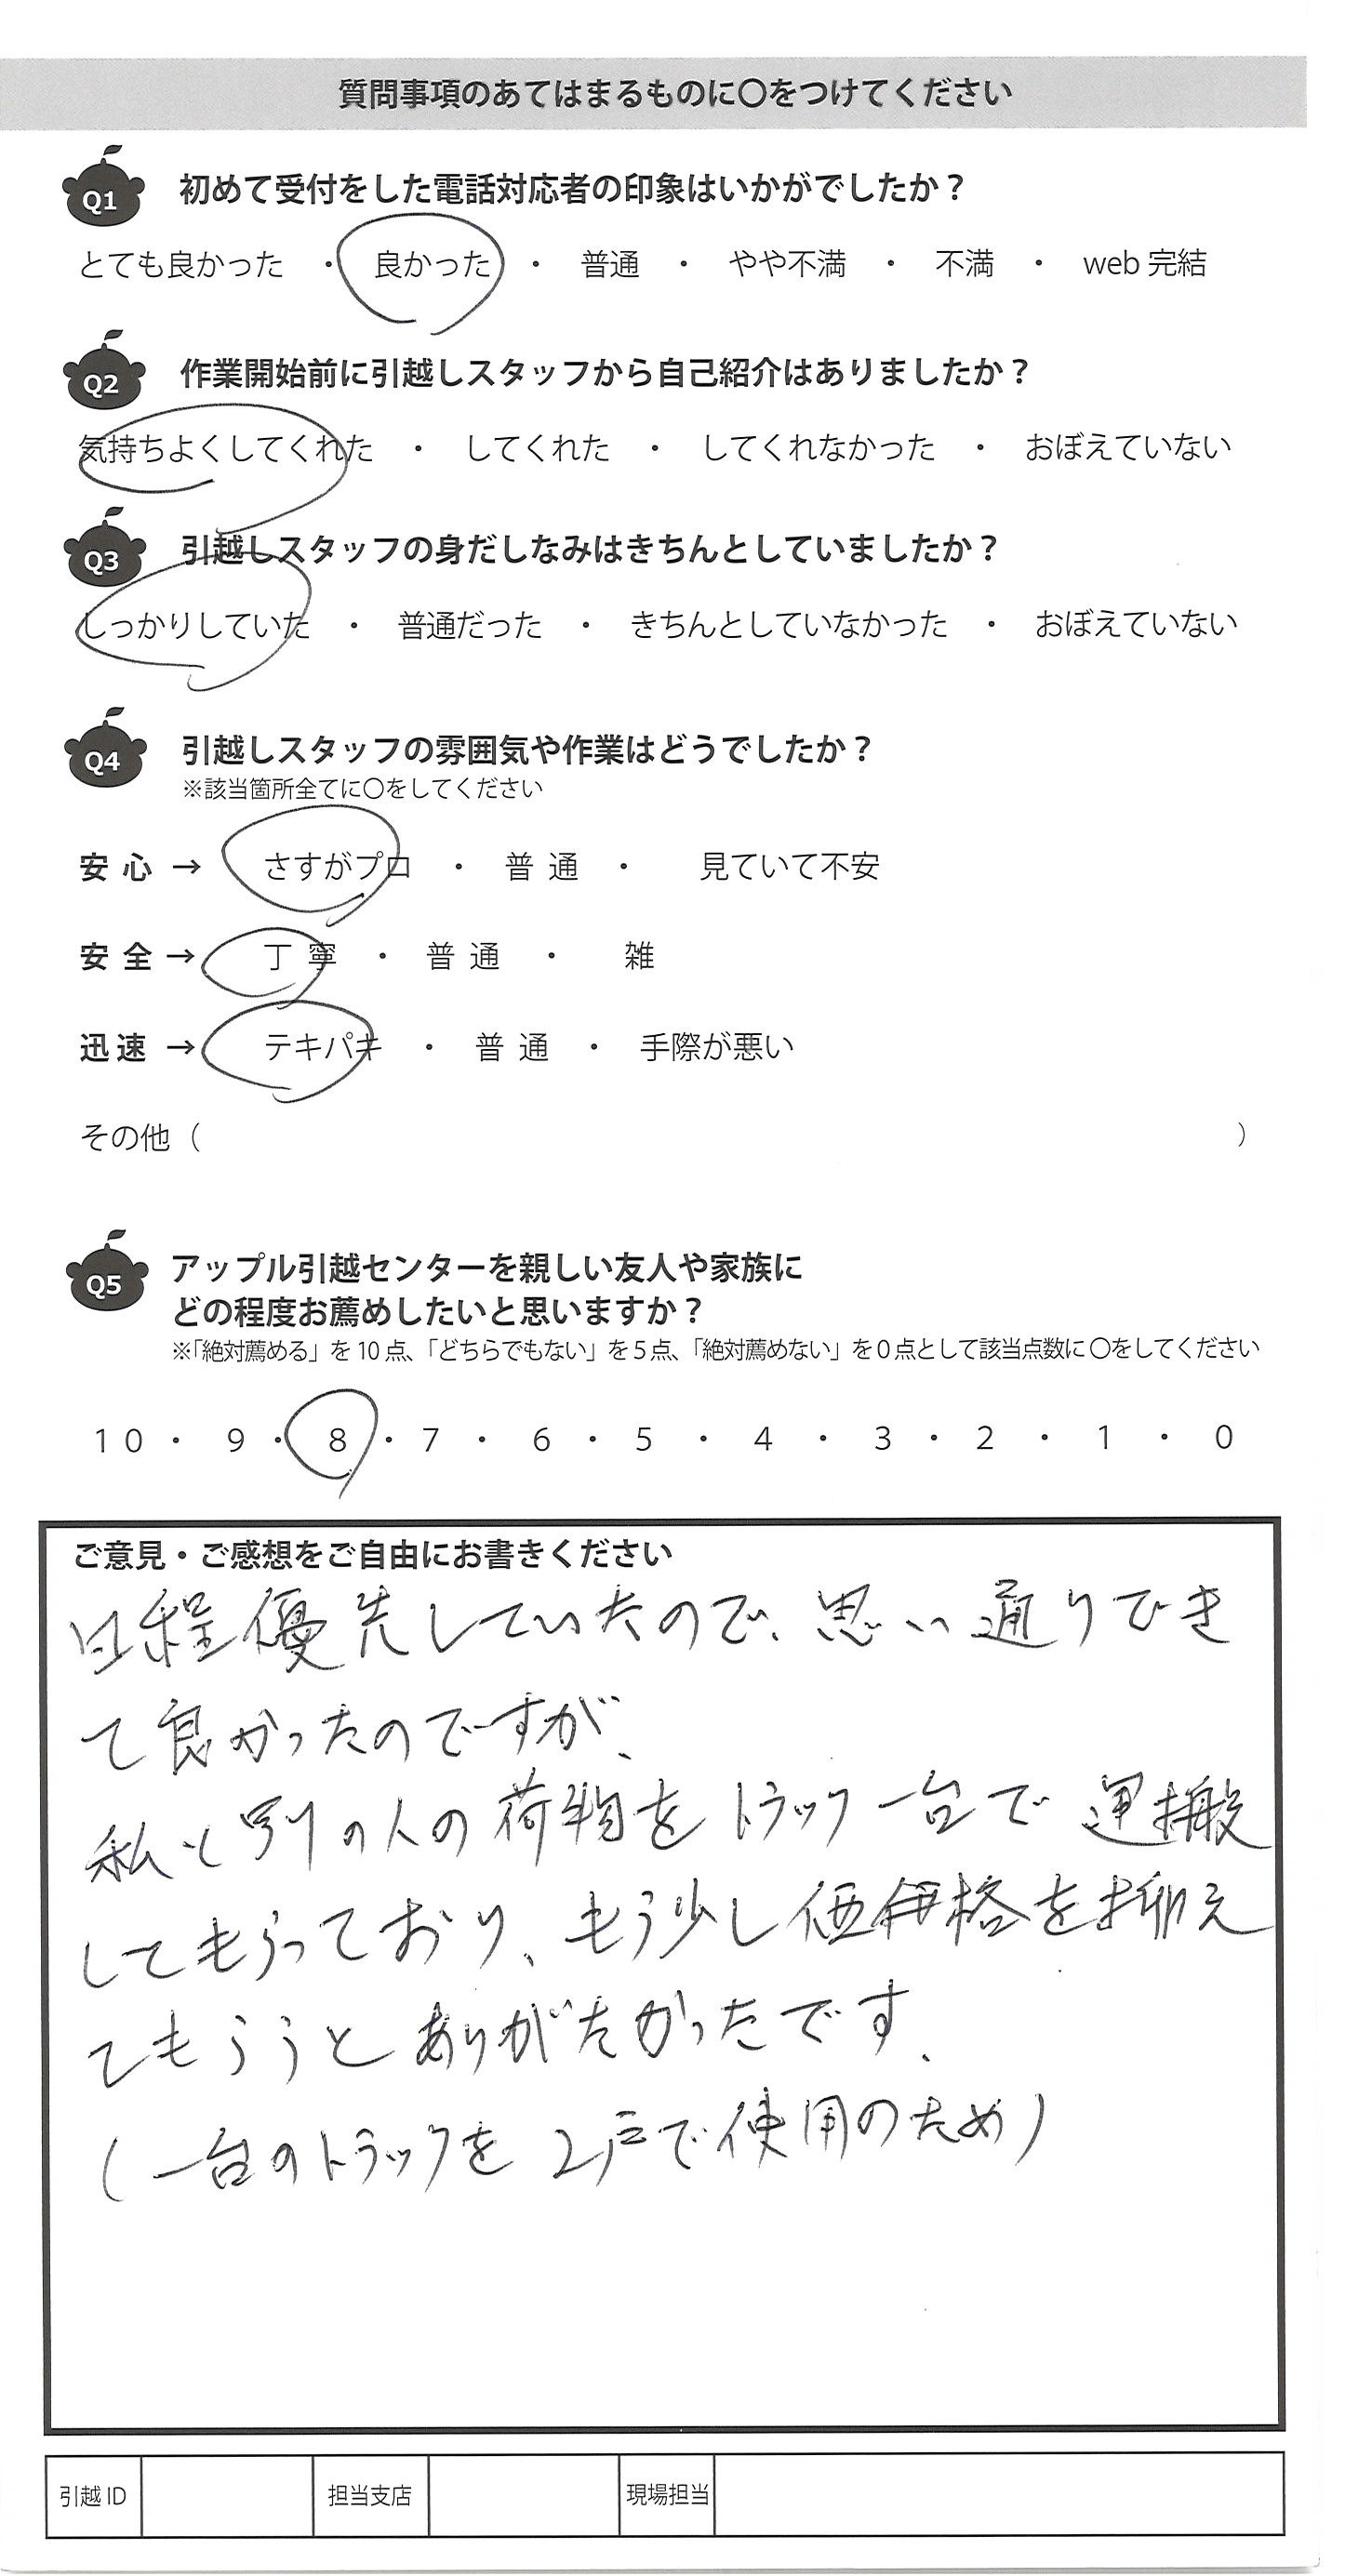 質問事項のあてはまるものに〇をつけてください
Q1 初めて受付をした電話対応者の印象はいかがでしたか？
とても良かった ・ 良かった ・ 普通 ・ やや不満 ・ 不満 ・ web 完結
Q2 作業開始前に引越しスタッフから自己紹介はありましたか？
気持ちよくしてくれた ・ してくれた ・ してくれなかった ・ おぼえていない
Q3 引越しスタッフの身だしなみはきちんとしていましたか？
しっかりしていた ・ 普通だった ・ きちんとしていなかった ・ おぼえていない
Q4 引越しスタッフの雰囲気や作業はどうでしたか？
※該当箇所全てに〇をしてください
安心 → さすがプロ ・ 普通 ・ 見ていて不安
安全 → 丁寧 ・ 普通 ・ 雑
迅速 → テキパキ ・ 普通 ・ 手際が悪い
その他（ ）
Q5 アップル引越センターを親しい友人や家族に
どの程度お薦めしたいと思いますか？
※「絶対薦める」を 10 点、「どちらでもない」を 5 点、「絶対薦めない」を 0 点として該当点数に 〇をしてください
10 ・ 9 ・ 8 ・ 7 ・ 6 ・ 5 ・ 4 ・ 3 ・ 2 ・ 1 ・ 0
ご意見・ご感想をご自由にお書きください
日程優先していたので、思い通りでき
て良かったのですが、
私と別の人の荷物をトラック一台で運搬
してもらっており、もう少し価格を抑え
てもらうとありがたかったです。
（一台のトラックを2戸で使用のため）
引越 ID 担当支店 現場担当